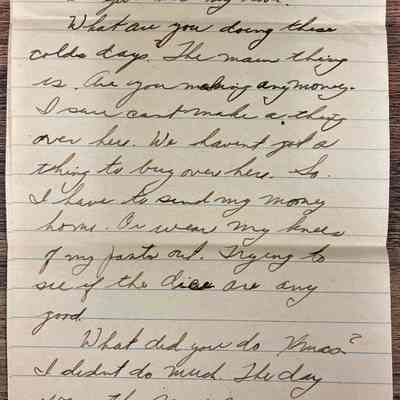 What are you doing these
colds days. The main thing
is. Are you making any money.
I sure cant make a thing
over here. We havent got a
thing to buy over here. So.
I have to send my money
home. Or wear my knees
of my pants out. Trying to
see if the dice are any
good.
What did you do Xmas?
I didnt do much. The day